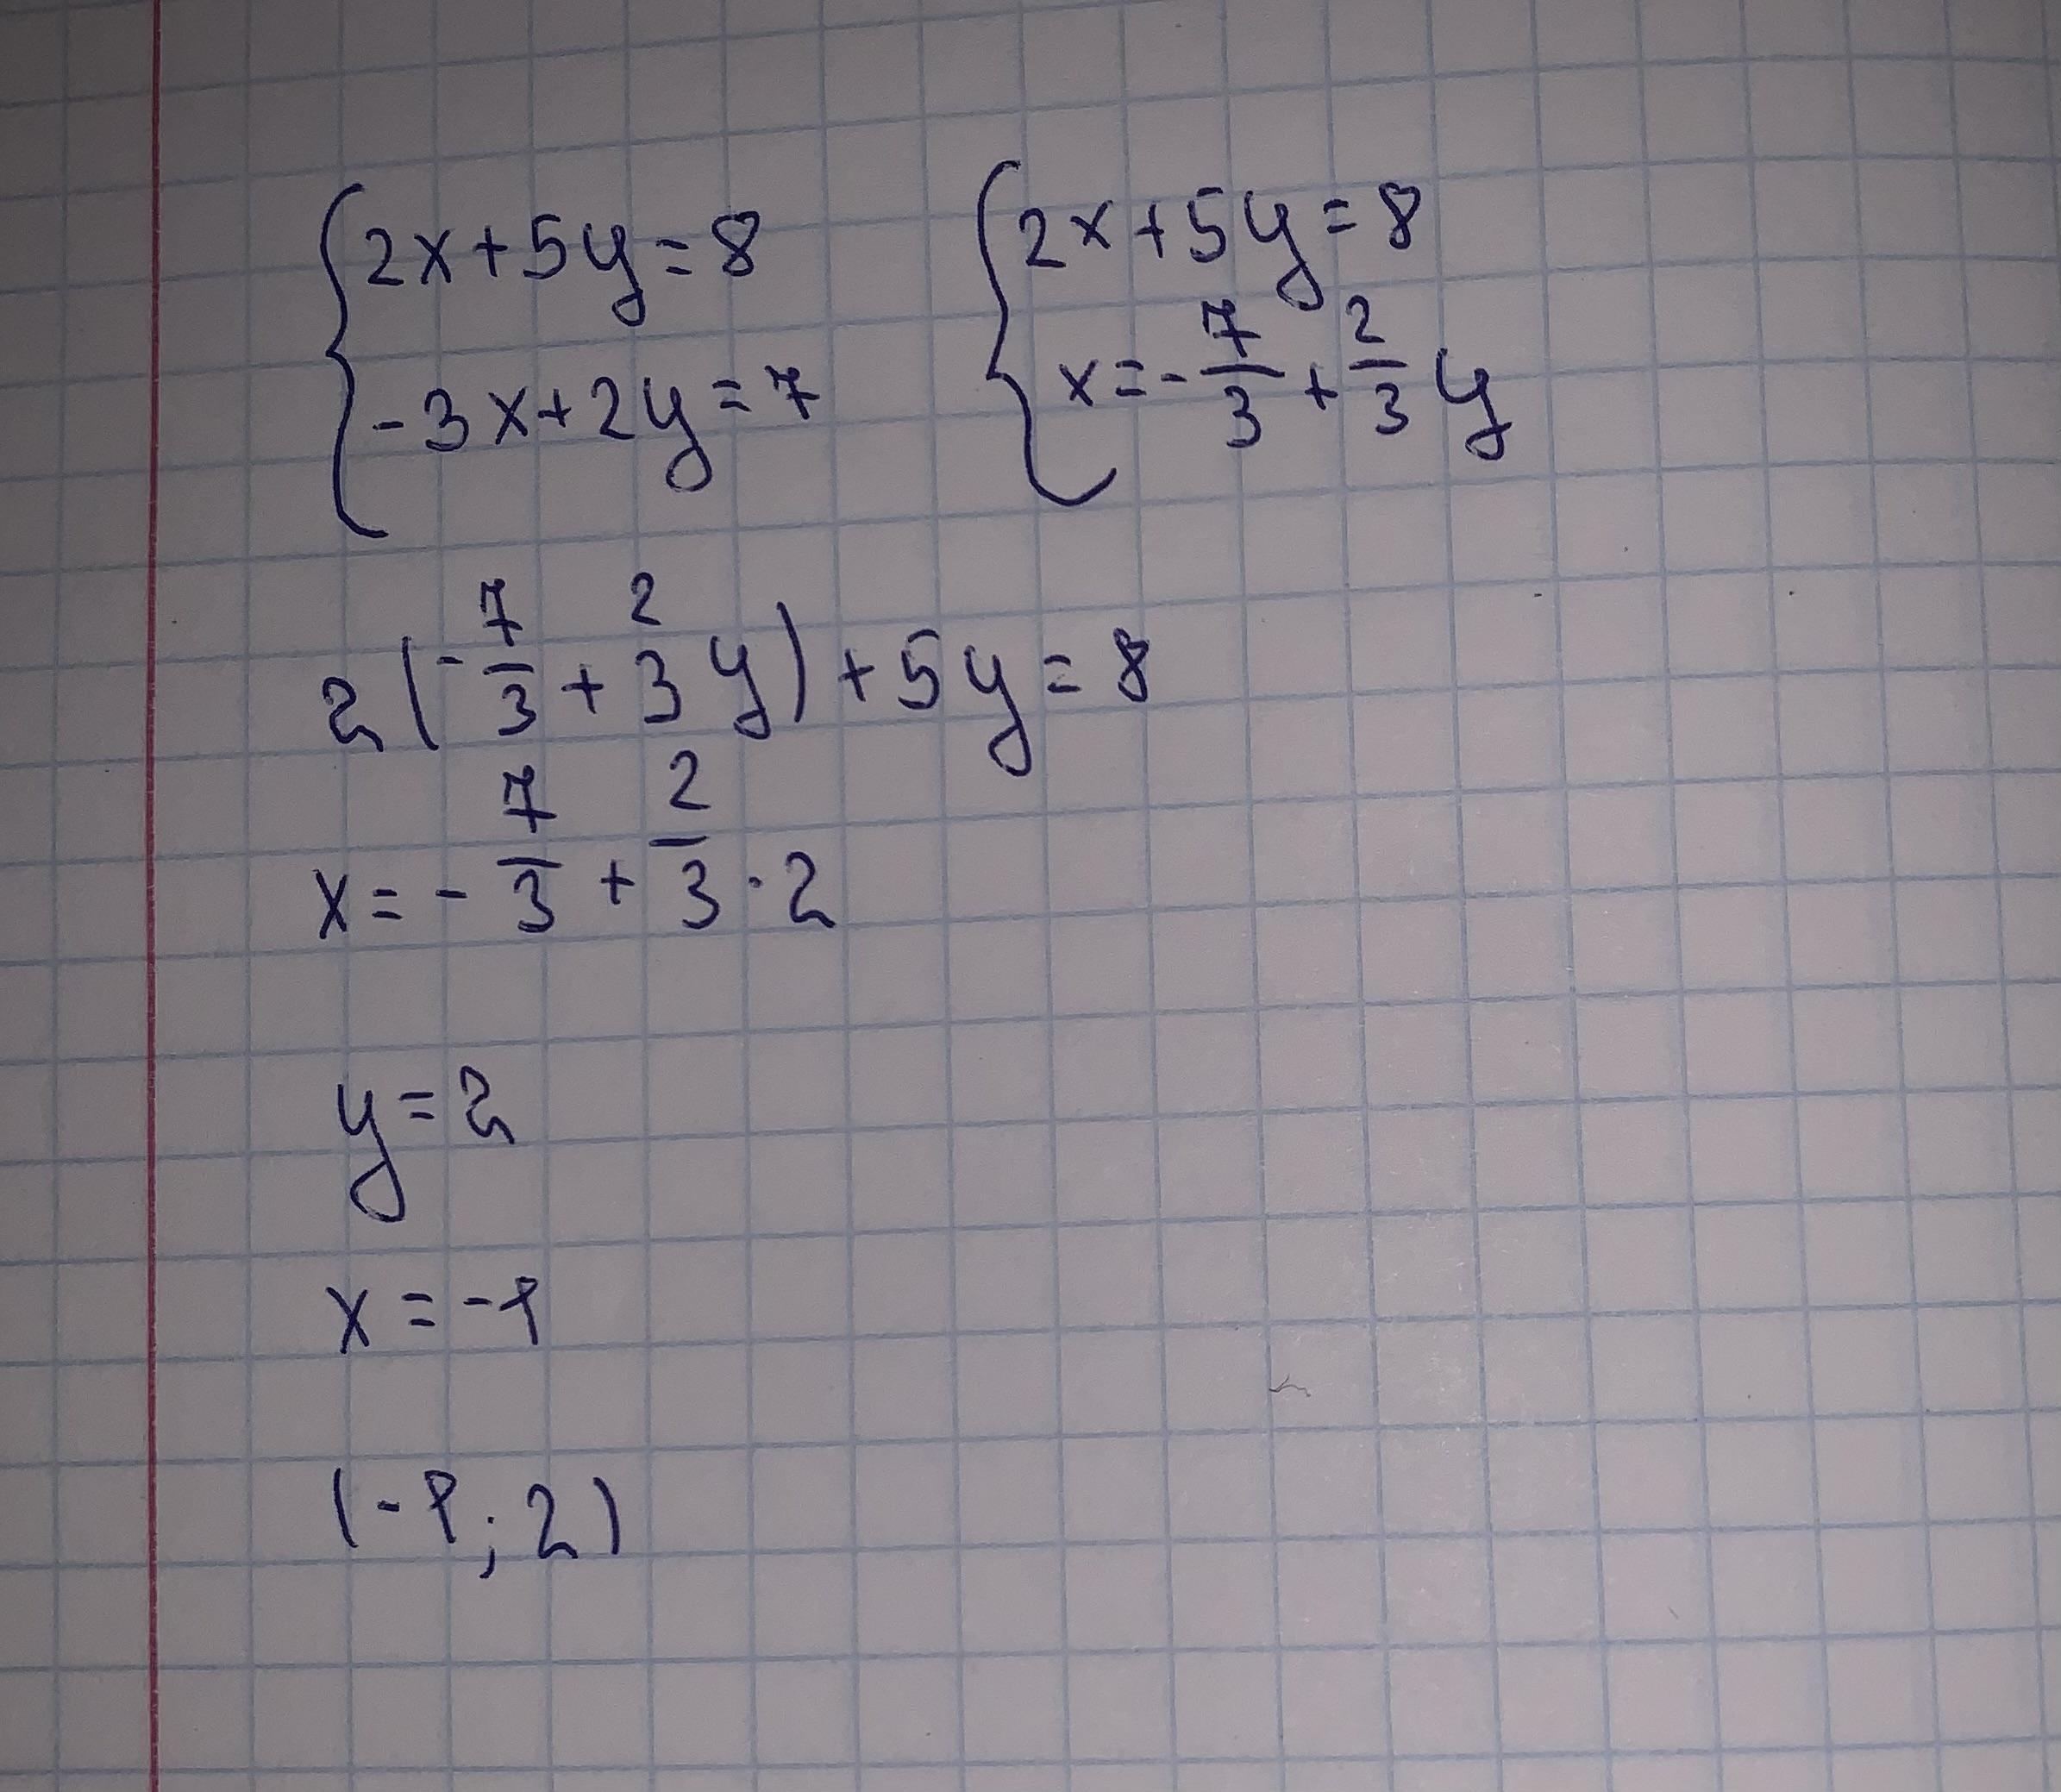 2x+5y=8
-3x+2y=7
2x+5y=8
x=-7/3+2/3y
2(-7/3+2/3y)+5y=8
x=-7/3+2/3·2
y=2
x=-1
(-1;2)